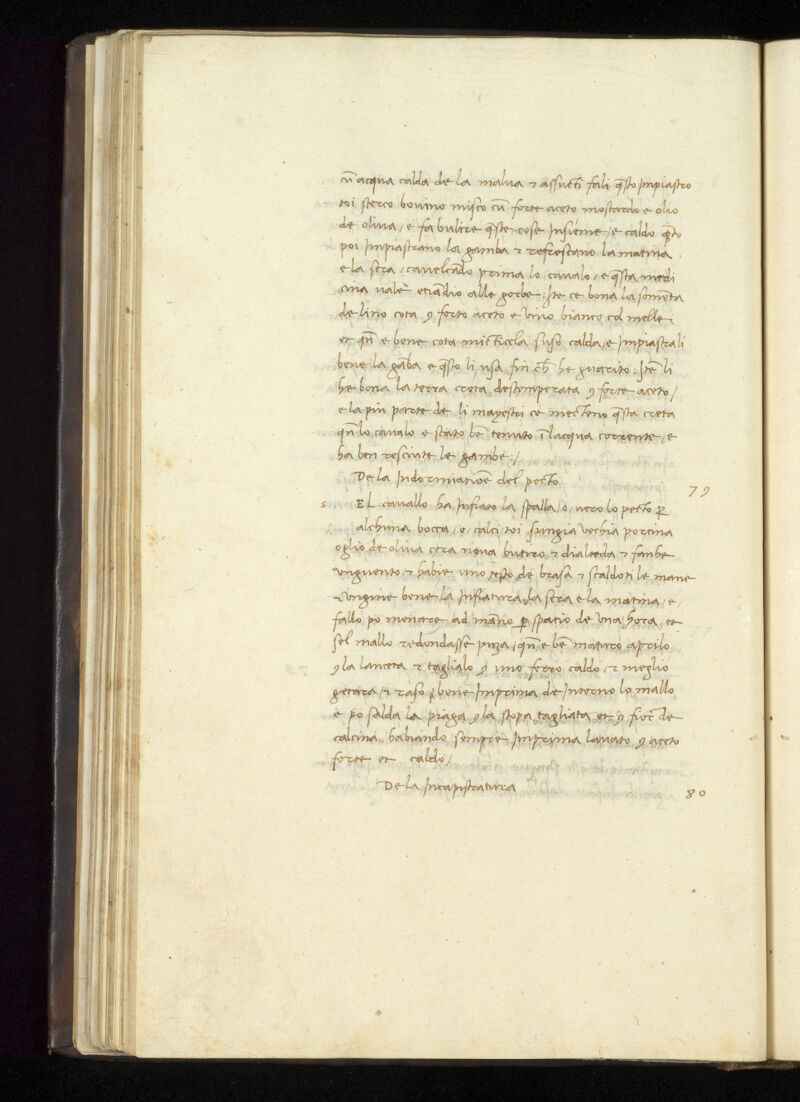 cũ acqua calda de la malua & assuctĩ fali q̃sto Impiastro
toi sterco bouino misto cũ forte aceto mostardo e olio
de oliua / e fa bulire q̃ste cose Insieme / e caldo q̃to
poi Impiastrano la gamba & refrescano la matina
e la sera / caualcãdo prima lo caualo / e q̃sta medi
cina uale etiãdio alle gorbe: Itẽ ce bona la somẽta
de lino cota ꝑ forto aceto e uino bianco col melle:
et qñ e bene cota micticela suso calda / e Impiastrali
bene la gãba e q̃sto li usa fin ch̃ he guarito: Itẽ li
he bona la terra creta destemperata ꝑ forte aceto /
e la piu parte de li mayestri ce mecteno q̃sta creta
qñ lo caualo e stato bẽ tenuto ĩ lacqua corrente / e
ha ben resciute le gambe: /
De la Indorminatiõe del pecto
79
s EL cauallo ha Infiato la spalla / o / uero lo pecto ꝑ
alchuna bocca / o / calci / toi sungia uechia porcina
oglio de oliua cera noua buturo & dialteda & fanhe
unguento & habie uno testo de brasa & scaldoti le mane
& ungine bene la Infiatura la sera e la matina / e /
fallo po menare ad mano ꝑ spatio de una hora / et
sel mallo redondasse puza / qñ e bẽ maturo aprilo
ꝑ la lanceta & taglialo ꝑ uno ferro caldo / & meglio
getara / & raso bene Imprima de Interno lo mallo
e po salda la piaga ꝑ la stopa tagliata et ꝑ fior de
calcina habiando sempre Imprima lauato ꝑ aceto
forte et caldo /
De la Incapistratura
80